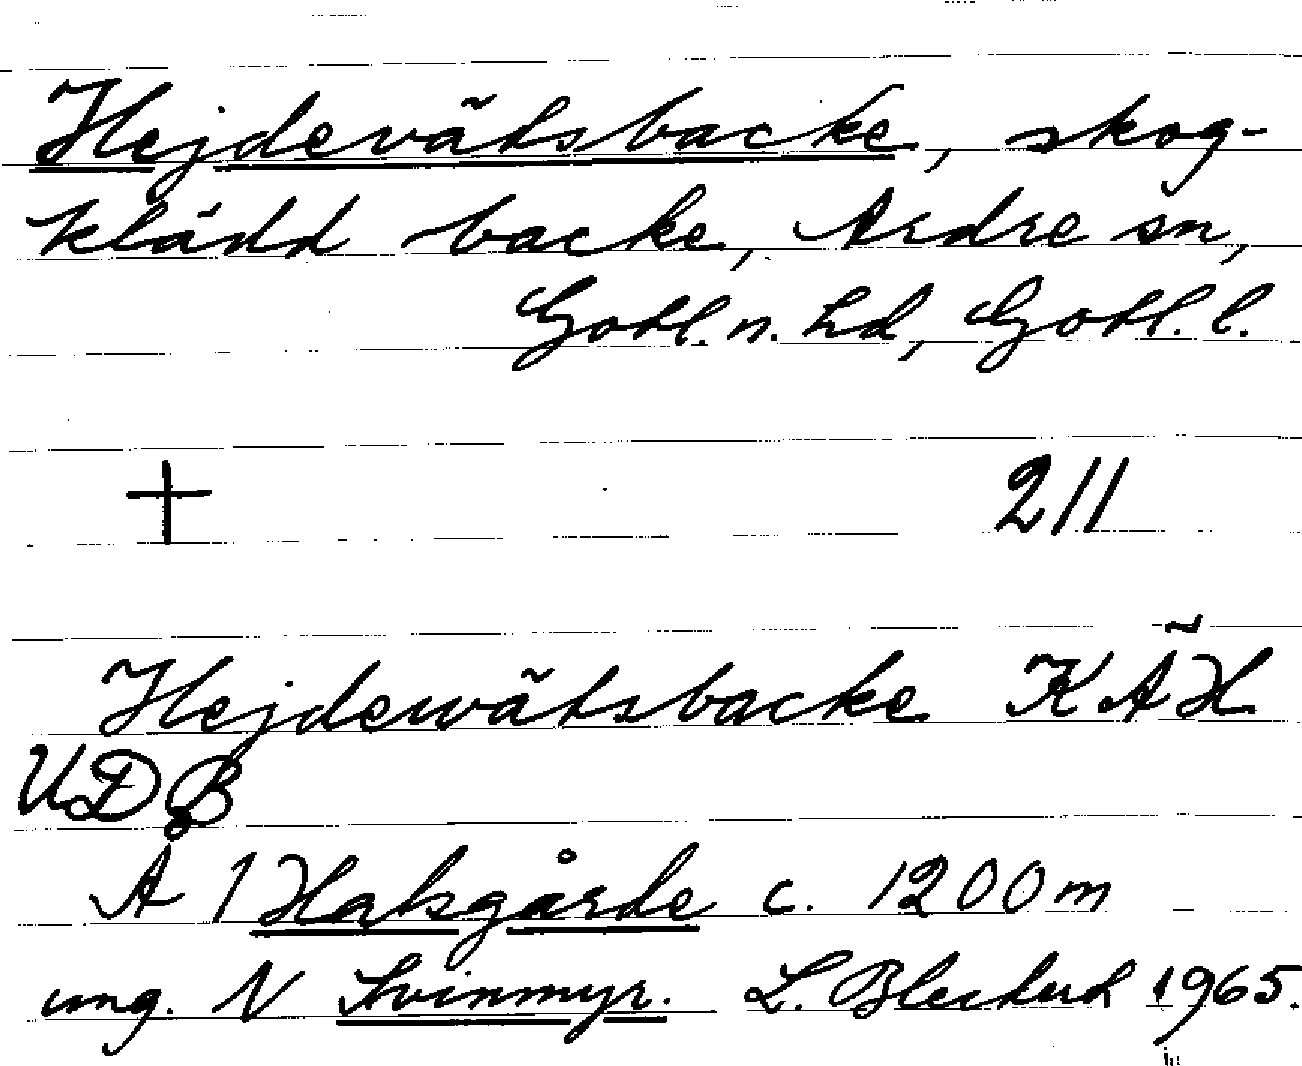 Hejdevätsbacke, skog-
klädd backe, Ardre sn,
Gotl. n. hd, Gotl. l.
† 211
Hejdewätsbacke KÄH
UDB
A 1 Halsgårde c. 1200 m
ung. N Svinmyr. L. Bleckert 1965.